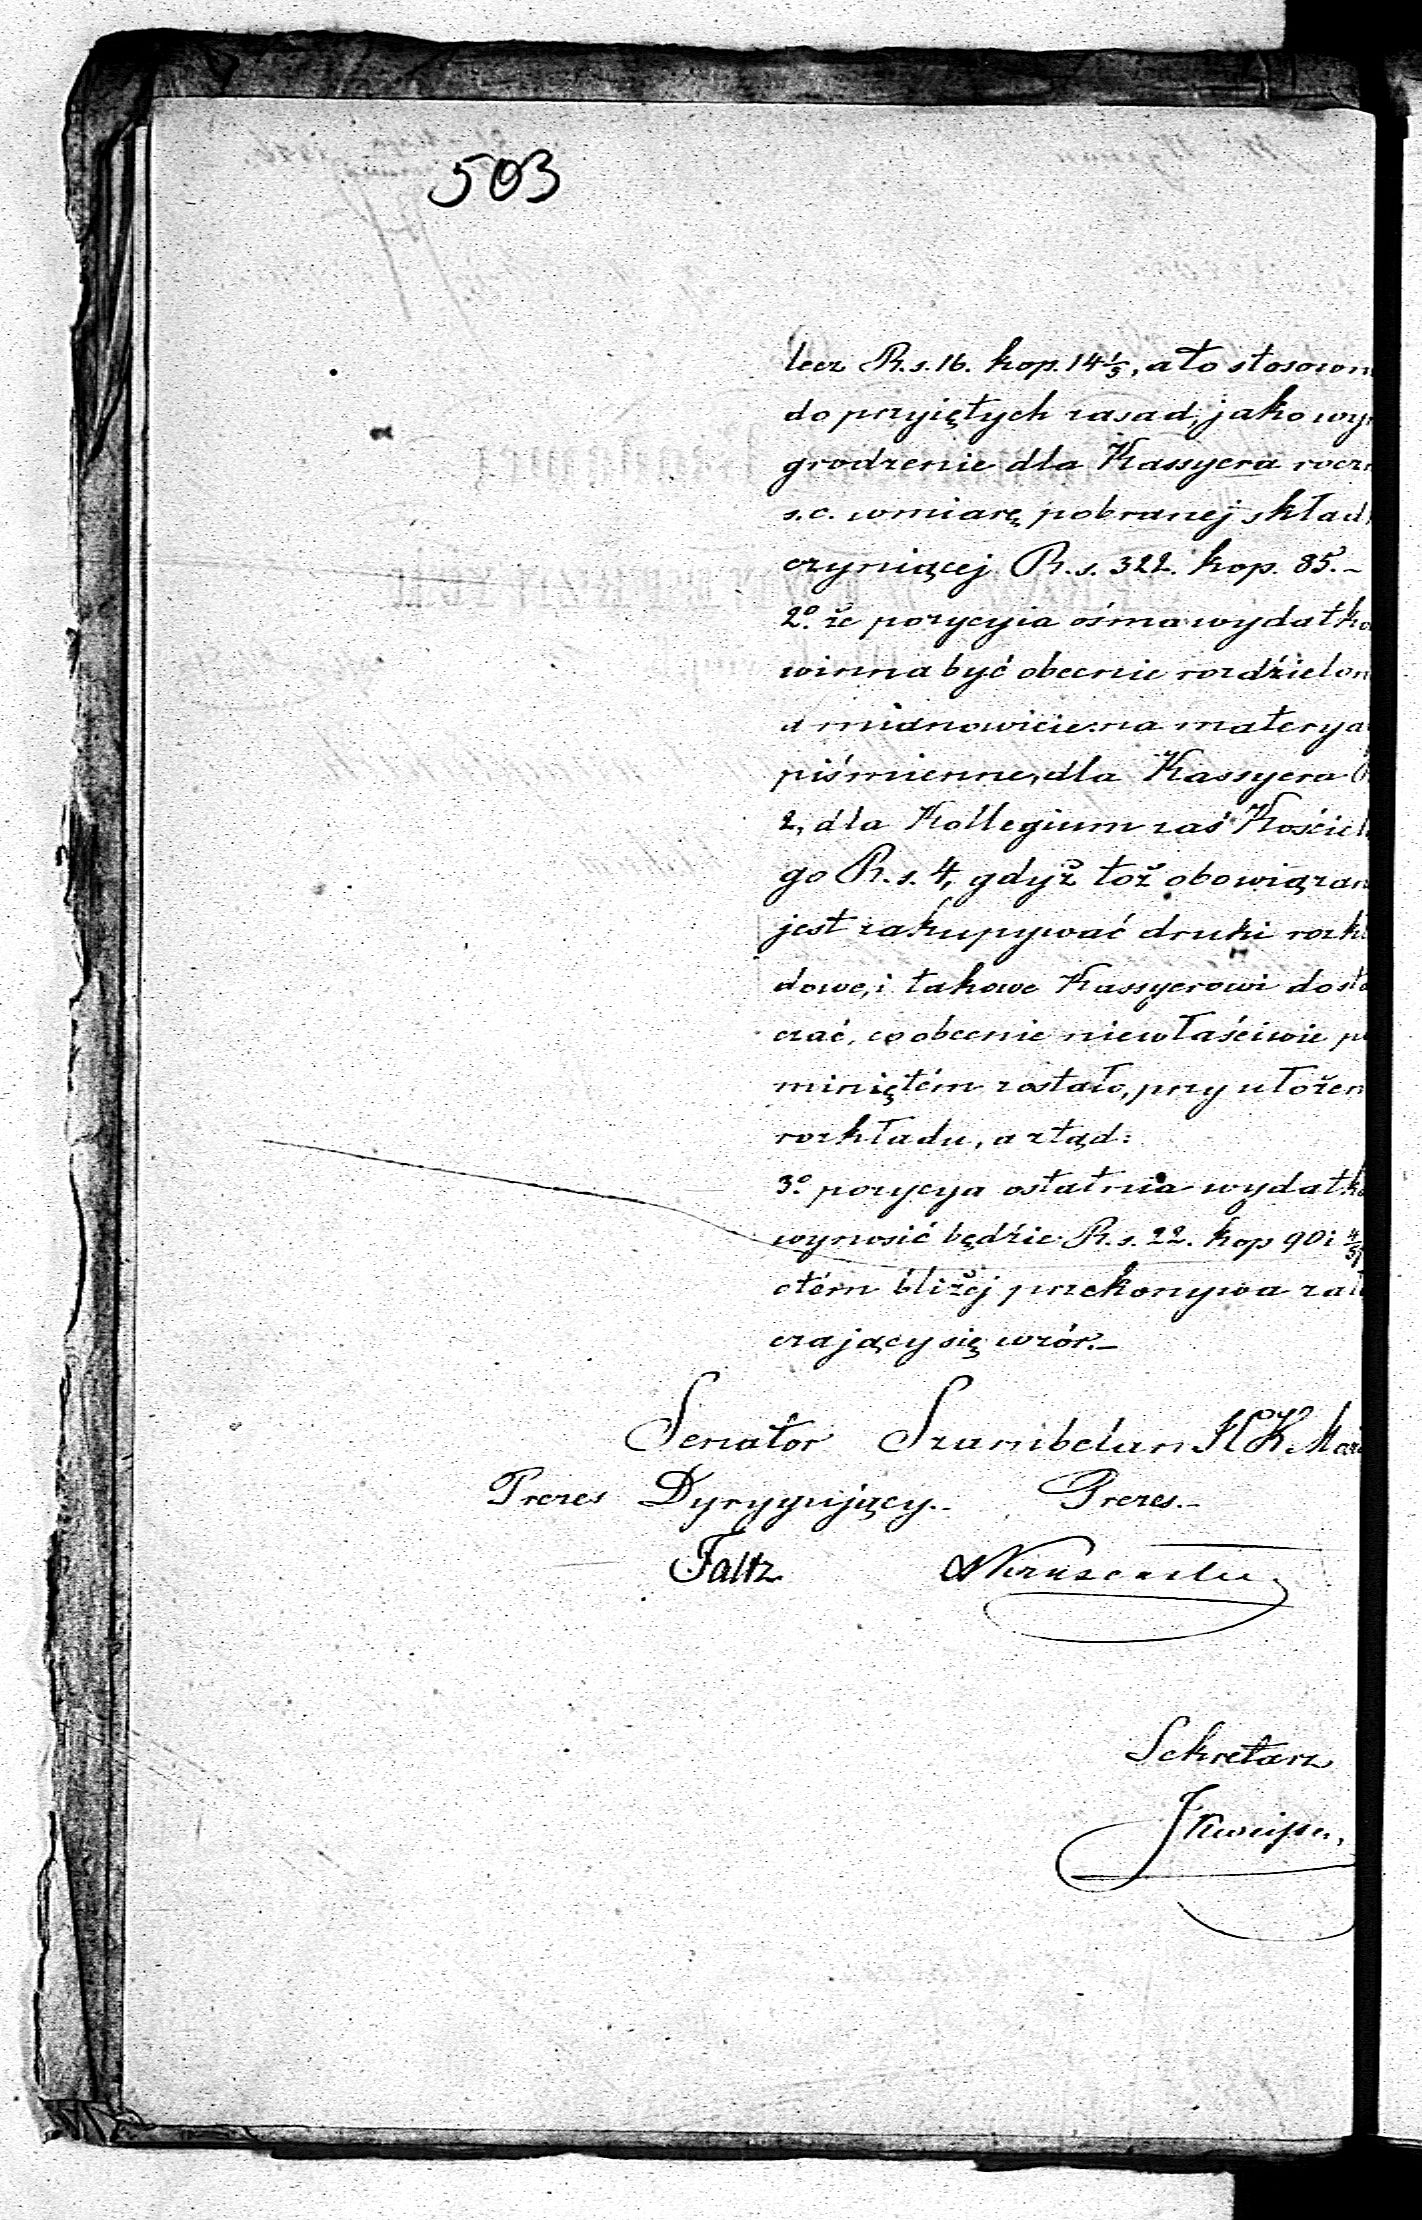 503
lecz R.s.16. kop. 14 1/5, a to stosown
do przyiętych zasad, jako wy
grodzenie dla Kassyera rocz
s.c. wmiarę pobranej skład
czyniącej R.s. 322. kop. 85.-
2º że pozycyia ósma wydatko
winna być obecnie rozdźielon
a mianowicie: na materya
piśmienne, dla Kassyera
2, dla Kollegium zaś Kościel
go R.s. 4, gdyż toż obowiązan
jest zakupywać druki rozkł
dowe, i takowe Kassyerowi dosta
czać, co obecnie niewłaściwie p
miniętém zostało, przy ułożen
rozkładu, a ztąd:
3º pozycya ostatnia wydatk
wynosić będzie R.s. 22. kop 90 i 4/5
otém bliżej przekonywa zał
czający się wzór.-
Senator Szambelan
Prezes Dyrygujący.- Prezes.-
Faltz
Sekretarz